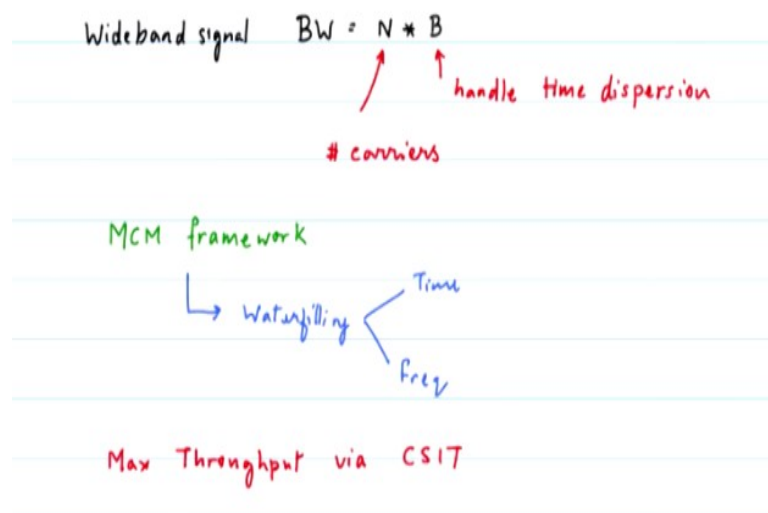 Wideband signal BW = N * B
handle time dispersion
# carriers
MCM framework
Waterfilling
Time
Freq
Max Throughput via CSIT